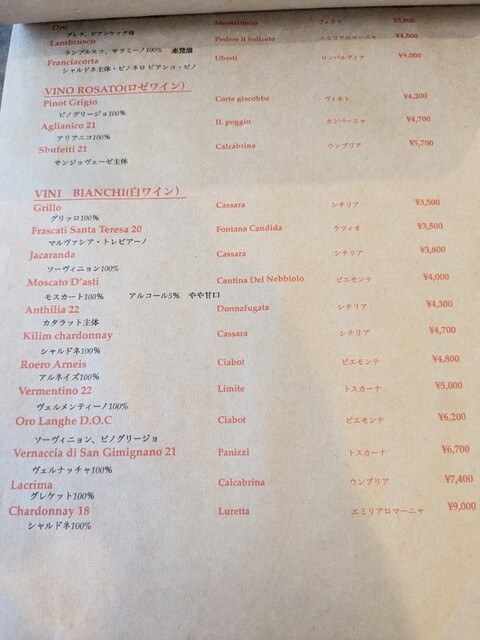 Oro Montelvini ヴェネト ¥3,800
グレラ、ビアンケッタ種
Lambrusco Podere il Saliceto エミリアロマーニャ ¥4,500
ランブルスコ、サラミーノ100% 赤発泡
Franciacorta Uberti ロンバルディア ¥9,000
シャルドネ主体・ピノネロ ビアンコ・ピノ
VINO ROSATO(ロゼワイン)
Pinot Grigio Corte giacobbe ヴィネト ¥4,200
ピノグリージョ100%
Aglianico 21 IL poggio カンパーニャ ¥4,700
アリアニコ100%
Sbufetti 21 Calcabrina ウンブリア ¥5,700
サンジョヴェーゼ主体
VINI BIANCHI(白ワイン)
Grillo Cassara シチリア ¥3,500
グリッロ100%
Frascati Santa Teresa 20 Fontana Candida ラツィオ ¥3,500
マルヴァシア・トレビアーノ
Jacaranda Cassara シチリア ¥3,800
ソーヴィニョン100%
Moscato D'asti Cantina Del Nebbiolo ピエモンテ ¥4,000
モスカート100% アルコール5% やや甘口
Anthilia 22 Donnafugata シチリア ¥4,300
カタラット主体
Kilim chardonnay Cassara シチリア ¥4,700
シャルドネ100%
Roero Arneis Ciabot ピエモンテ ¥4,800
アルネイズ100%
Vermentino 22 Limite トスカーナ ¥5,000
ヴェルメンティーノ100%
Oro Langhe D.O.C Ciabot ピエモンテ ¥6,200
ソーヴィニョン、ピノグリージョ
Vernaccia di San Gimignano 21 Panizzi トスカーナ ¥6,700
ヴェルナッチャ100%
Lacrima Calcabrina ウンブリア ¥7,400
グレケット100%
Chardonnay 18 Luretta エミリアロマーニャ ¥9,000
シャルドネ100%